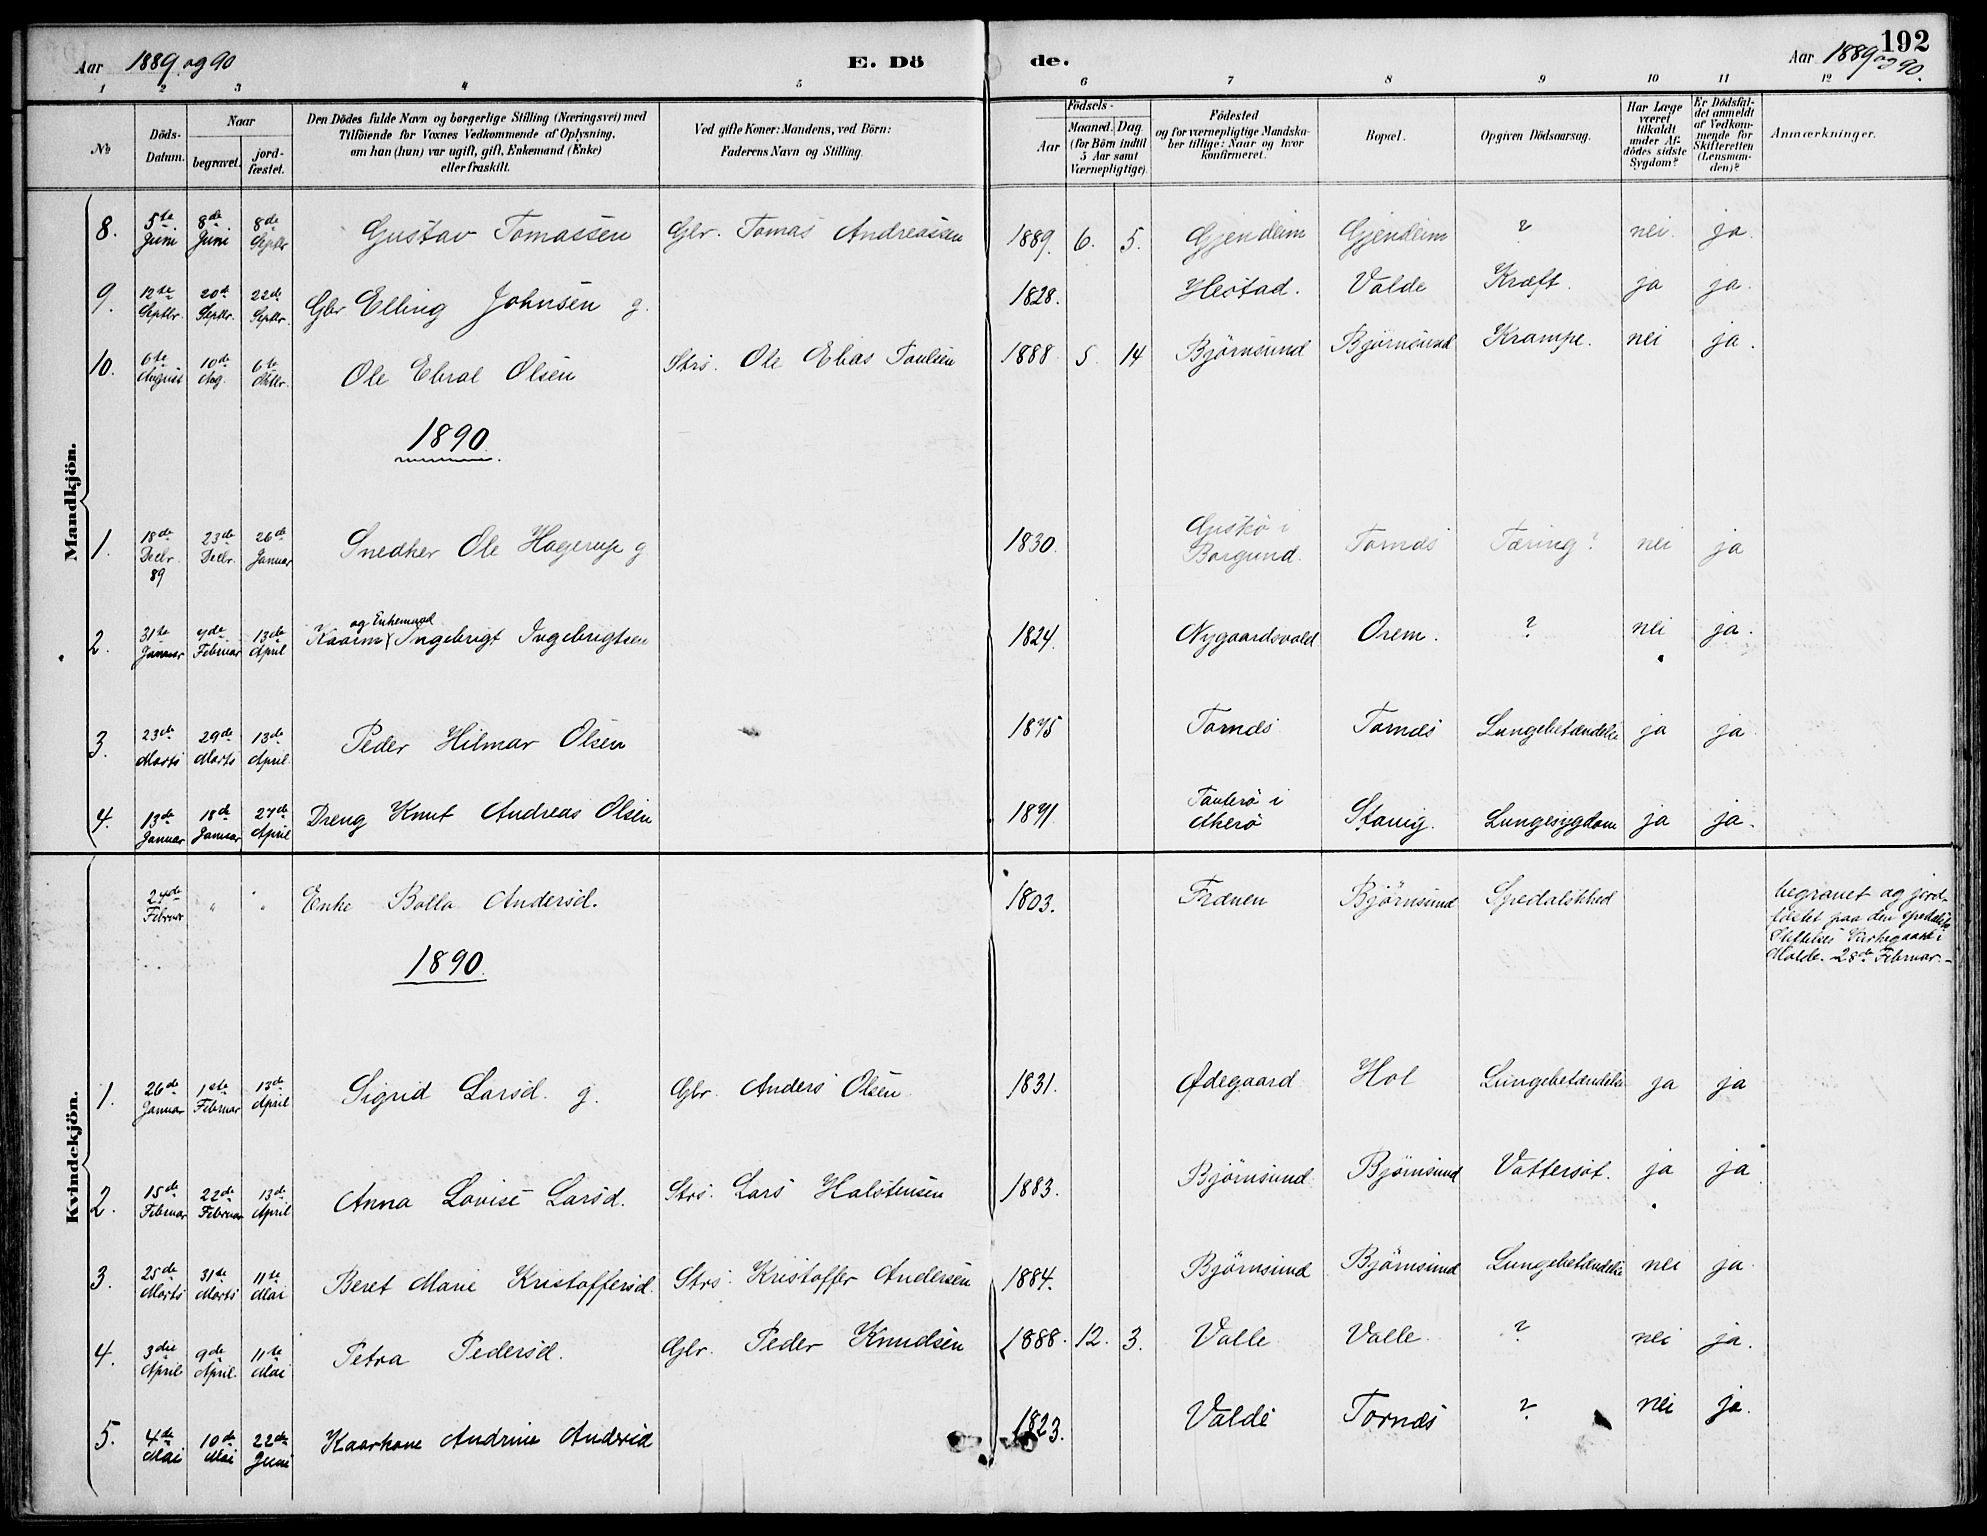 192
Aar 1889 og 90
E. Dö de.
Aar 1889 og 90.
1 2 3 4 5 6 7 8 9 10 11 12
No
Döds-Datum.
Naar
begravet.
jord-fæstet.
Den Dödes fulde Navn og borgerlige Stilling (Næringsvei) med
Tilföiende for Voxnes Vedkommende af Oplysning,
om han (hun) var ugift, gift, Enkemand (Enke)
eller fraskilt.
Ved gifte Koner: Mandens, ved Börn:
Faderens Navn og Stilling.
Födsels-
Aar
Maaned. Dag
(for Börn indtil
5 Aar samt
Værnepligtige)
Födested
og for værnepligtige Mandska-
ber tillige: Naar og hvor
konfirmeret.
Bopæl.
Opgiven Dödsaarsag.
Har Læge
været
tilkaldt
under Af-
dödes sidste
Sygdom?
Er Dödsfal-
det anmeldt
af Vedkom-
mende for
Skifteretten
(Lensman-
den)?
Anmærkninger.
Mandkjön.
8. 5te Juni 8de Juni 8de Septbr Gustav Tomassen Gbr. Tomas Andreassen 1889. 6. 5. Gjendem Gjendem ? nei. ja.
9. 12te Septbr. 20de Septbr. 22de Septbr. Gbr Elling Johnsen g. 1828. Hestad. Valde Kræft. ja ja.
10. 6te August 10de Aug. 6te Oktbr. Ole Ebral Olsen Strs. Ole Elias Paulsen 1888 5. 14 Bjørnsund Bjørnsund Krampe. nei ja.
1890.
1. 18de Decbr. 89 23de Decbr. 26de Januar Snedker Ole Hagerup g 1830. Giskø i Borgund. Tornæs Tæring? nei ja
2. 31te Januar 7de Februar 13de April Kaarm og Enkemand Ingebrigt Ingebrigtsen 1824. Nygaardsvald Orem. ? nei ja.
3. 23de Marts 29de Marts 13de April Peder Hilmar Olsen 1875 Tornæs Tornæs Lungebetændelse ja ja
4. 13de Januar 18de Januar 27de April Dreng Knut Andreas Olsen 1871 Tauterø i Akerø Stavig. Lungesygdom ja ja.
Kvindekjön.
24de Februar " " Enke Bolla Andersd. 1803. Frænen Bjørnsund Spedalskhed begravet og jord-
fæstet paa den spedalske
Stiftelses Kirkegaard i
Molde. 28de Februar.-
1890.
1. 26de Januar 1ste Februar 13de April Sigrid Larsd. g. Gbr. Anders Olsen. 1831. Ødegaard Hol Lungebetændelse ja ja
2. 15de Februar 22de Februar 13de April Anna Lovise Larsd. Strs. Lars Halstensen 1883. Bjørnsund. Bjørnsund Vattersot. ja ja
3. 25de Marts 31te Marts 11te Mai Beret Marie Kristoffersd. Strs. Kristoffer Andersen 1884. Bjørnsund Bjørnsund Lungebetændelse nei ja.
4. 3die April 9de April. 11te Mai Petra Pedersd. Gbr. Peder Knudsen 1888. 12. 3. Valle Valle. ? nei ja.
5. 4de Mai 10de Mai 22de Juni Kaarkone Andrine Andersd 1823. Valde Tornæs ? nei ja.